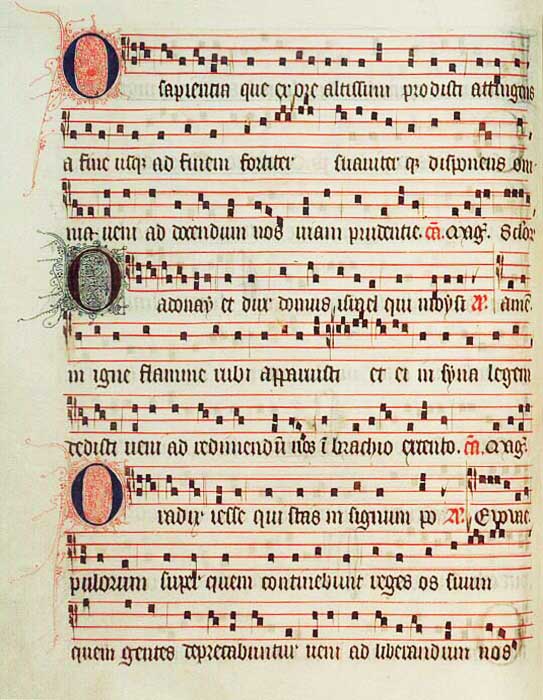 O sapientia que ex ore altissimi prodisti attingens
a fine usqȝ ad finem fortiter suauiter qȝ disponens om
nia ueni ad docendum nos uiam prudentie. cā. Mag̅.
O adonay et dux domus israel qui moysi R. amē.
in igne flamme rubi apparuisti et ei in syna legem
dedisti ueni ad redimendū nos ī brachio extento. cā. Mag̅.
O radix iesse qui stas in signum po R.
pulorum super quem continebunt reges os suum
quem gentes deprecabuntur ueni ad liberandum nos